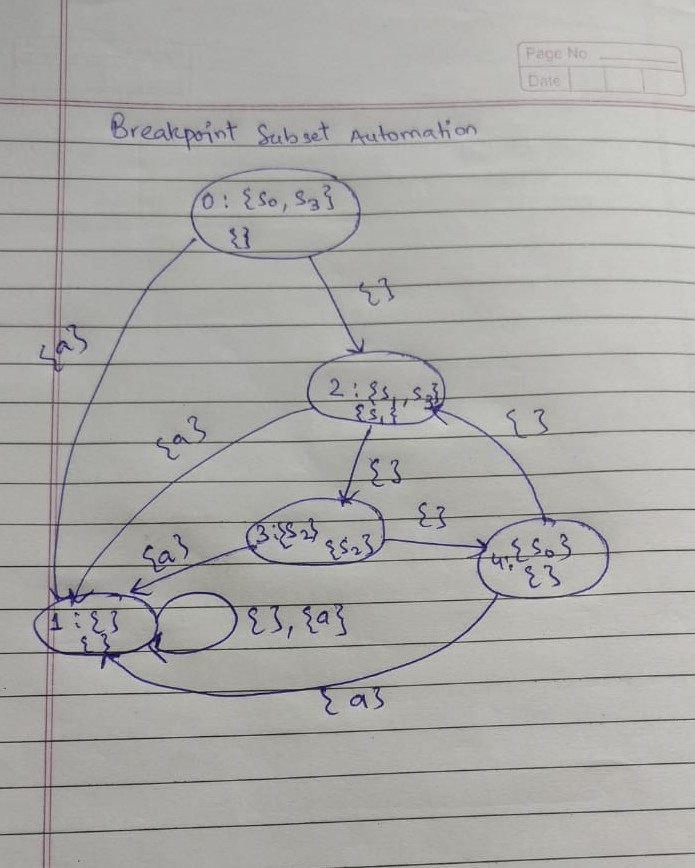 Page No
Date
Breakpoint Subset Automation
0 : {s0, s3}
{}
{ }
{a}
2 : {s1, s3}
{s1}
{a}
{ }
{ }
3 : {s2}
{s2}
{ }
4 : {s0}
{ }
{a}
1 : { }
{ }
{ }, {a}
{ a}